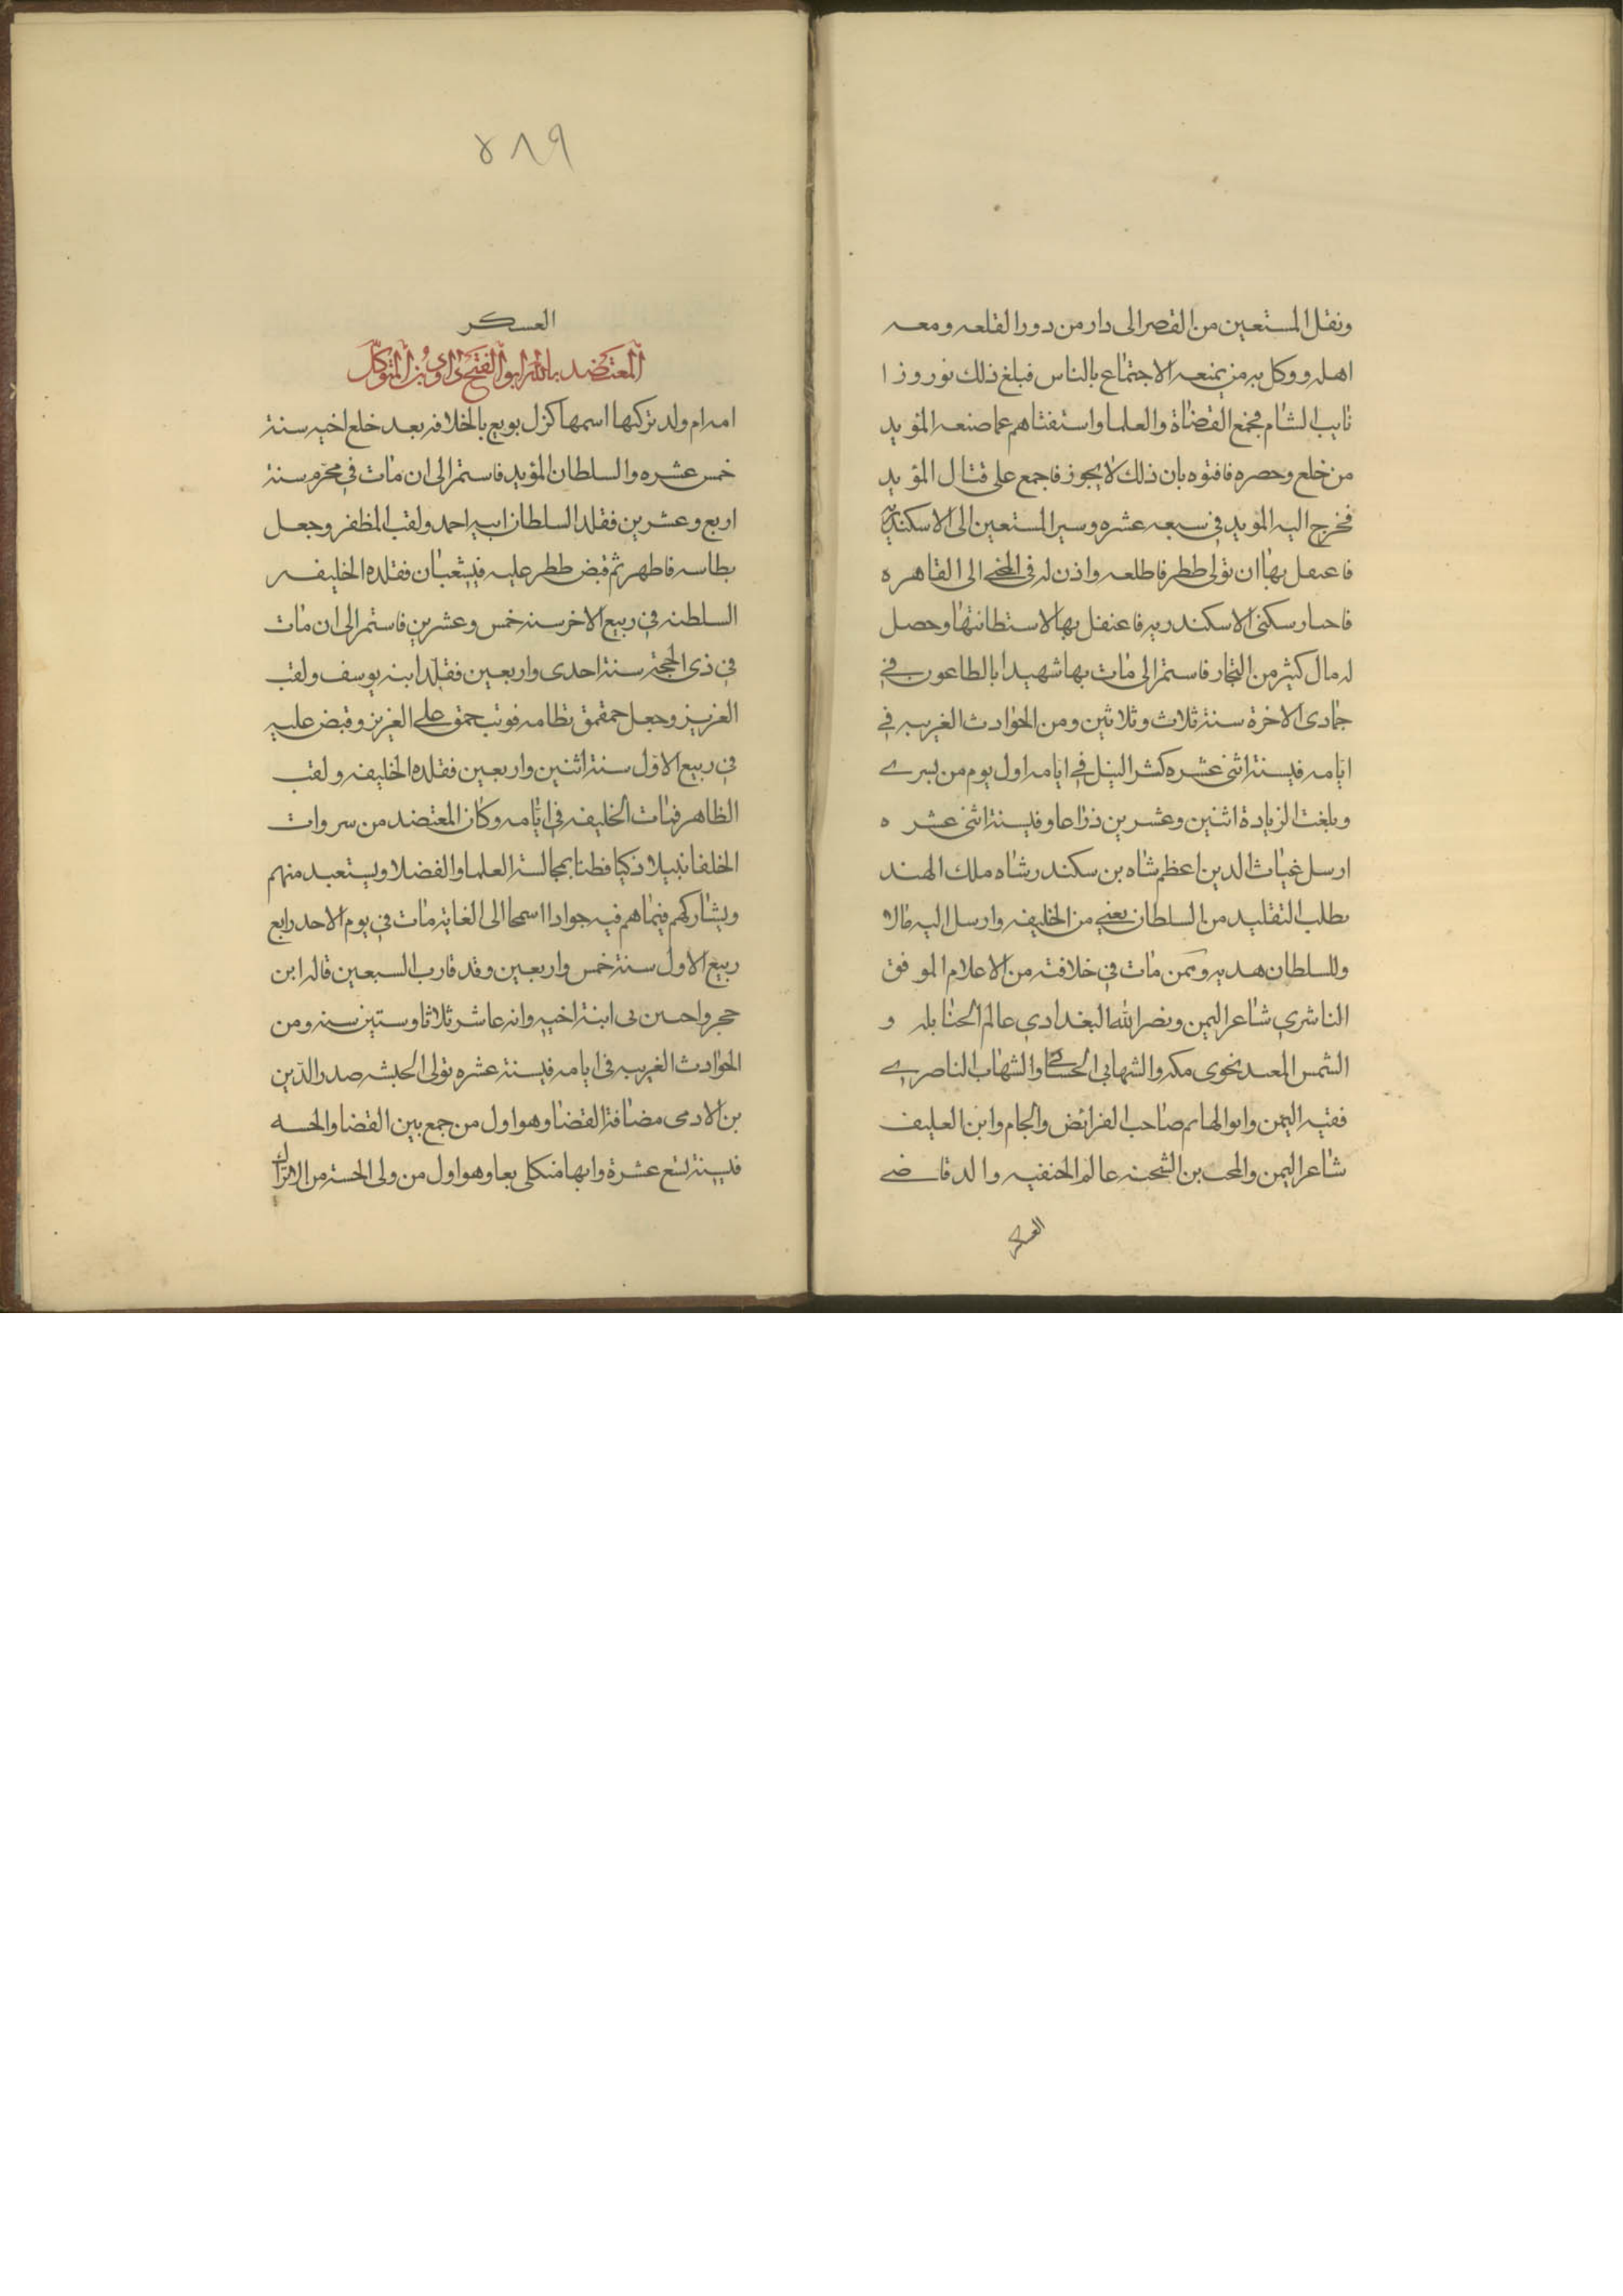 ونقل المستعين من القصر الى دار من دور القلعه ومعه
اهله ووكل به من يمنعه الاجتماع بالناس فبلغ ذلك نوروز ا
نايب الشام فجمع القضاة والعلما واستفتاهم عما صنعه المؤيد
من خلع وحصره فافتوه بان ذلك لا يجوز فاجمع على قتال المؤيد
فخرج اليه المويد في سبعه عشره وسير المستعين الى الاسكندرية
فاعتقل بها ان تولى ططر فاطلعه واذن له في المجي الى القاهره
فاحتار سكنى الاسكندريه فاعتقل بها لاستطانتها وحصل
له مال كثير من التجار فاستمر الى مات بها شهيدا بالطاعون في
جمادى الاخرة سنة ثلاث وثلاثين ومن الحوادث الغريبه في
ايامه في سنة اثنى عشره كثر النيل في ايامه اول يوم من بسرى
وبلغت الزيادة اثنين وعشرين ذراعا وفي سنة اثنى عشر ه
ارسل غياث الدين اعظم شاه بن سكندر شاه ملك الهند
بطلب التقليد من السلطان يعني من الخليفه وارسل اليه مالا
وللسلطان هديه وممن مات في خلافته من الاعلام الموفق
الناشري شاعر اليمن ونصر الله البغدادي عالم الحنابله و
الشمس المعيد نحوى مكه والشهابي الحسباني والشهاب الناصري
فقيه اليمن وابو الهايم صاحب الفرائض والجام وابن العليف
شاعر اليمن والمحب بن الشحنه عالم الحنفيه والد قاضي
العسكر
٨١٩
العسكر
المعتضد بالله ابو الفتح داود بن المتوكل
امه ام ولد تركيها اسمها كزل بويع بالخلافه بعد خلع اخيه سنة
خمس عشره والسلطان المؤيد فاستمر الى ان مات في محرم سنة
اربع وعشرين فقلد السلطان ابنه احمد ولقب المظفر وجعل
بطاسه فاطهر ثم قبض ططر عليه في شعبان فقلده الخليفه
السلطنه في ربيع الاخر سنه خمس وعشرين فاستمر الى ان مات
في ذى الحجة سنة احدى واربعين فقلد ابنه يوسف ولقب
العزيز وجعل جمقمق نظامه فوتب جمق على العزيز وقبض عليه
في ربيع الاول سنة اثنين واربعين فقلده الخليفه ولقب
الظاهر فمات الخليفه في ايامه وكان المعتضد من سروات
الخلفا نبيلا ذكيا فطنا بمجالسة العلما والفضلا ويستعبد منهم
ويشاركهم فيما هم فيه جوادا اسمحا الى الغاية مات في يوم الاحد رابع
ربيع الاول سنة خمس واربعين وقد قارب السبعين قاله ابن
حجر واحسن بى ابنة اخيه وانه عاشر ثلاثا وستين سنه ومن
الحوادث الغريبه في ايامه في سنة عشره تولى الحبشه صدر الدين
بن الادمى مضافة القضا وهو اول من جمع بين القضا والحسه
في سنة تسع عشرة وابها منكلى بعا وهو اول من ولى الحسة من الاتراك